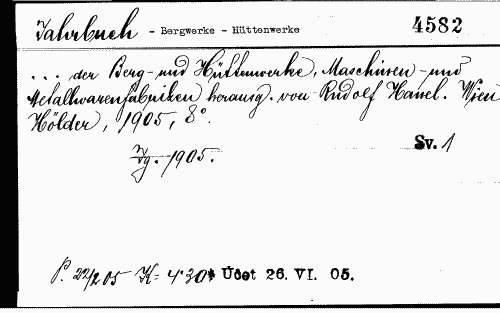 Jahrbuch - Bergwerke - Hüttenwerke 4582
... der Berg- und Hüttenwerke, Maschinen- und
Metallwarenfabriken herausg. von Rudolf Hanel. Wien
Hölder, 1905, 8°.
Jg. 1905. Sv. 1
P. 22/2 05 K- 4.30 Účet 26. VI. 05.